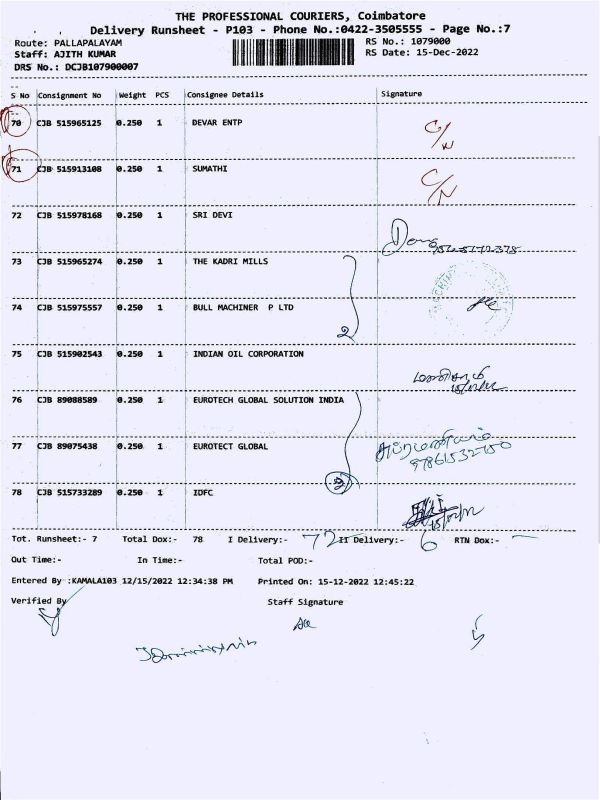 THE PROFESSIONAL COURIERS, Coimbatore
Delivery Runsheet - P103 - Phone No.:0422-3505555 - Page No.:7
Route: PALLAPALAYAM RS No.: 1079000
Staff: AJITH KUMAR RS Date: 15-Dec-2022
DRS No.: DCJB107900007
S No Consignment No Weight PCS Consignee Details Signature
70 CJB 515965125 0.250 1 DEVAR ENTP C/N
71 CJB 515913108 0.250 1 SUMATHI C/N
72 CJB 515978168 0.250 1 SRI DEVI
73 CJB 515965274 0.250 1 THE KADRI MILLS
74 CJB 515975557 0.250 1 BULL MACHINER P LTD 2
75 CJB 515902543 0.250 1 INDIAN OIL CORPORATION
76 CJB 89088589 0.250 1 EUROTECH GLOBAL SOLUTION INDIA
77 CJB 89075438 0.250 1 EUROTECT GLOBAL
2
78 CJB 515733289 0.250 1 IDFC
Tot. Runsheet:- 7 Total Dox:- 78 I Delivery:- 72 II Delivery:- 6 RTN Dox:- —
Out Time:- In Time:- Total POD:-
Entered By :KAMALA103 12/15/2022 12:34:38 PM Printed On: 15-12-2022 12:45:22
Verified By Staff Signature